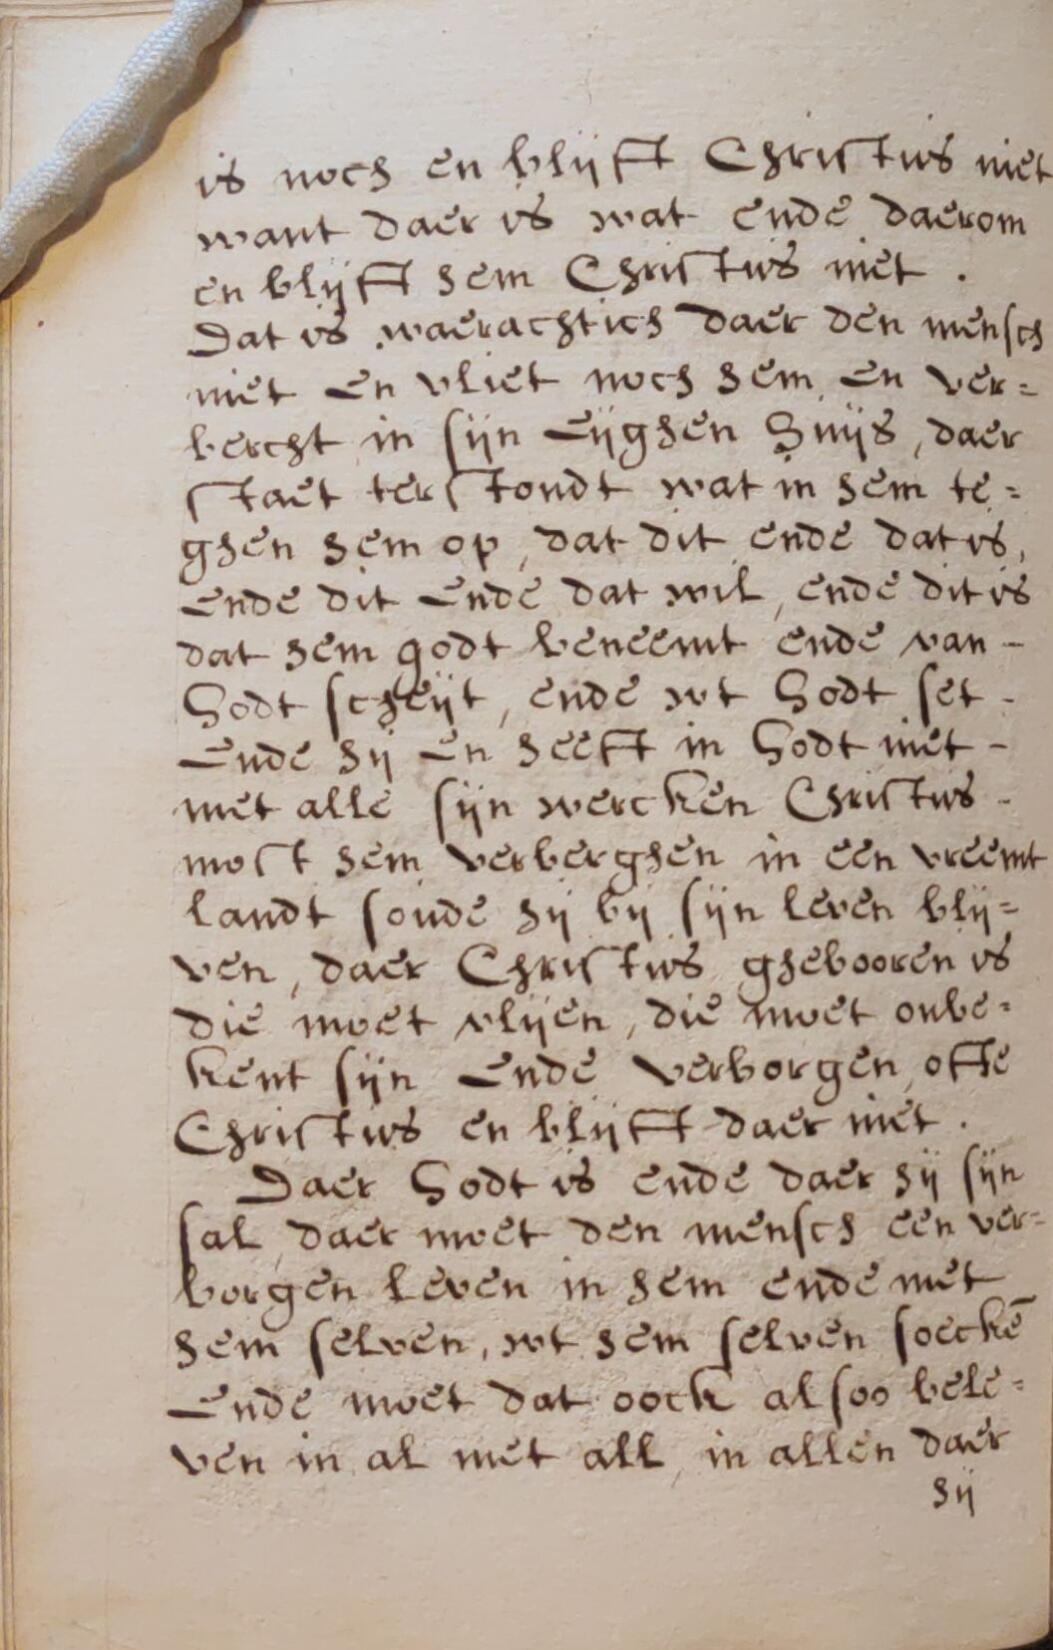 is noch en blijft Christus niet
want daer is wat ende daerom
en blijft hem Christus niet .
Dat is waerachtich daer den mensch
niet en vliet noch hem en ver=
bercht in sijn eijghen huijs, daer
staet terstondt wat in hem te=
ghen hem op, dat dit ende dat is,
ende dit ende dat wil, ende dit is
dat hem godt beneemt ende van -
Godt scheijt, ende wt Godt set -
ende hij en heeft in Godt niet -
met alle sijn wercken Christus -
most hem verberghen in een vreemt
landt soude hij bij sijn leven blij=
ven, daer Christus ghebooren is
die moet vlijen, die moet onbe=
kent sijn ende verborgen, ofte
Christus en blijft daer niet .
Daer Godt is ende daer hij sijn
sal, daer moet den mensch een ver=
borgen leven in hem ende met
hem selven, wt hem selven soeckē
ende moet dat oock alsoo bele=
ven in al met all, in allen daer
hij